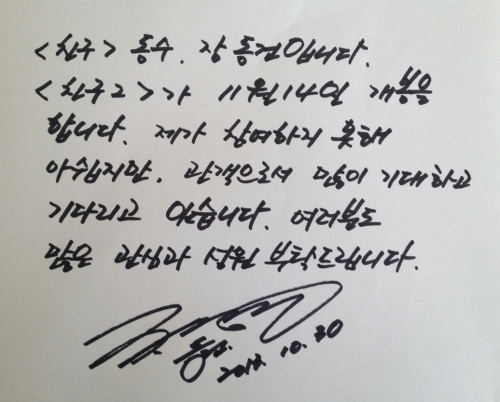 <친구> 동수. 장동건입니다.
<친구2>가 11월14일 개봉을
합니다. 제가 참여하지 못해
아쉽지만. 관객으로서 많이 기대하고
기다리고 있습니다. 여러분도
많은 관심과 성원 부탁드립니다.
10. 30